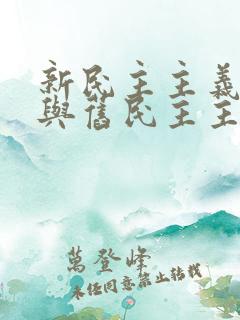 新民主主義
與舊民主主
萬登峰
未經同意禁止轉載